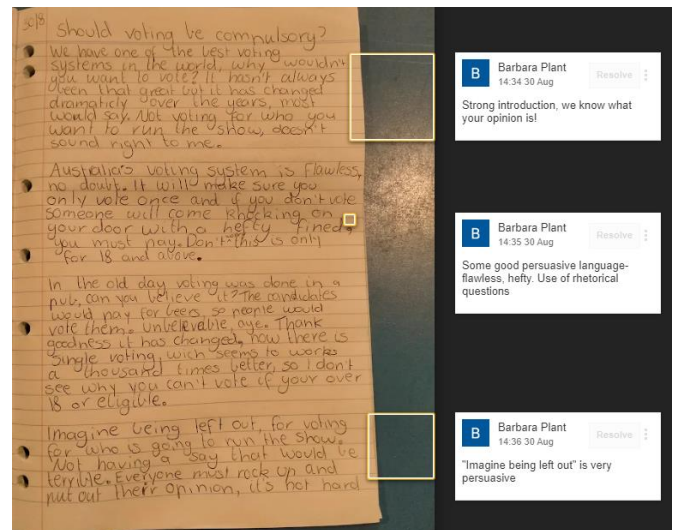 30/8
Should voting be compulsory?
We have one of the best voting
systems in the world, why wouldn't
you want to vote? It hasn't always
been that great but it has changed
dramaticly over the years, most
would say. Not voting for who you
want to run the show, doesn't
sound right to me.
Australia's voting system is flawless,
no doubt. It will make sure you
only vote once and if you don't vote
someone will come knocking on
your door with a hefty fine,
you must pay. Don't this is only
for 18 and above.
In the old day voting was done in a
pub, can you believe it? The candidates
would pay for beers, so people would
vote them. Unbelevable, aye. Thank
goodness it has changed, now there is
single voting, wich seems to works
a thousand times better, so I don't
see why you can't vote if your over
18 or eligible.
Imagine being left out, for voting
for who is going to run the show.
Not having a say that would be
terrible. Everyone must rock up and
put out their opinion, it's not hard
B
Barbara Plant
14:34 30 Aug
Resolve
Strong introduction, we know what
your opinion is!
B
Barbara Plant
14:35 30 Aug
Resolve
Some good persuasive language-
flawless, hefty. Use of rhetorical
questions
B
Barbara Plant
14:36 30 Aug
Resolve
"Imagine being left out" is very
persuasive